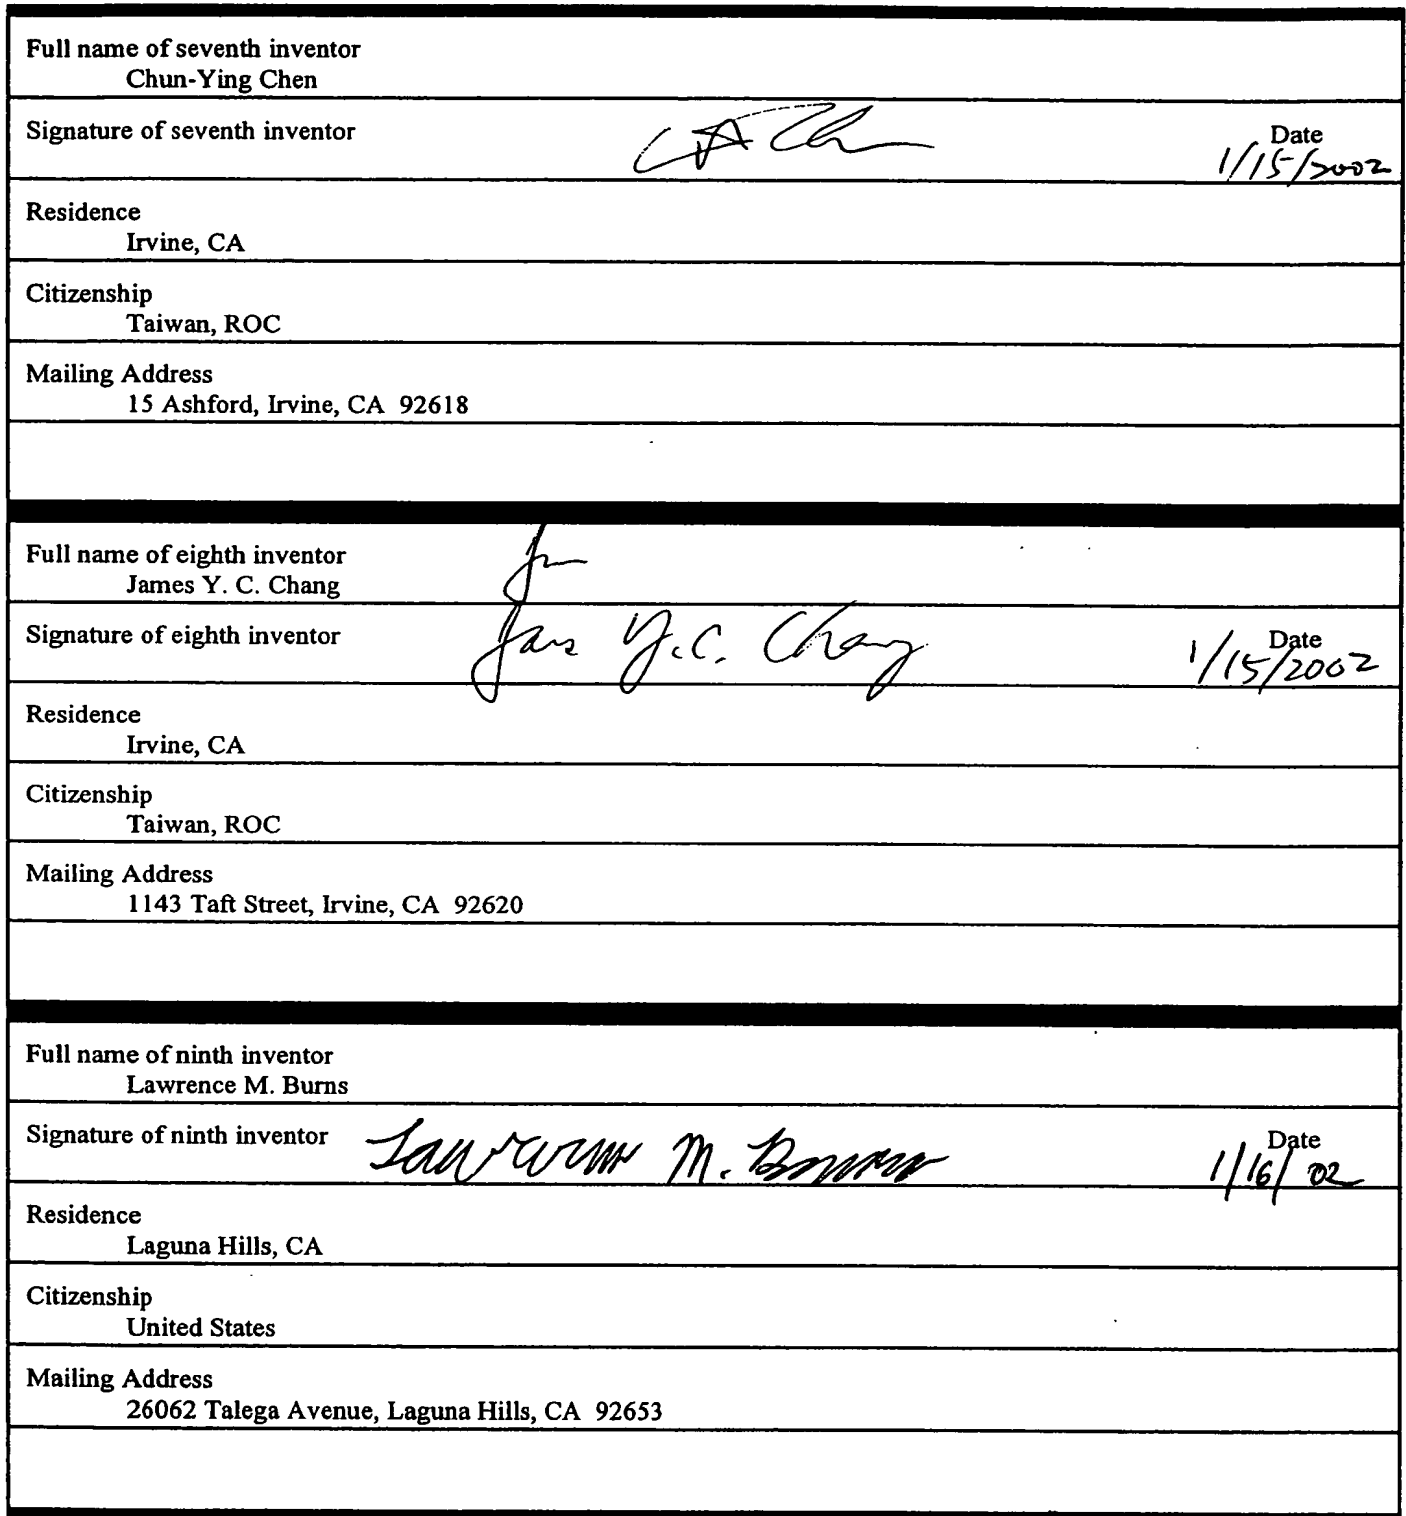 Full name of seventh inventor
Chun-Ying Chen
Signature of seventh inventor
Date
1/15/2002
Residence
Irvine, CA
Citizenship
Taiwan, ROC
Mailing Address
15 Ashford, Irvine, CA 92618
Full name of eighth inventor
James Y. C. Chang
Signature of eighth inventor Y.C. Chang
Date
1/15/2002
Residence
Irvine, CA
Citizenship
Taiwan, ROC
Mailing Address
1143 Taft Street, Irvine, CA 92620
Full name of ninth inventor
Lawrence M. Burns
Signature of ninth inventor Lawrence M. Burns
Date
1/16/02
Residence
Laguna Hills, CA
Citizenship
United States
Mailing Address
26062 Talega Avenue, Laguna Hills, CA 92653